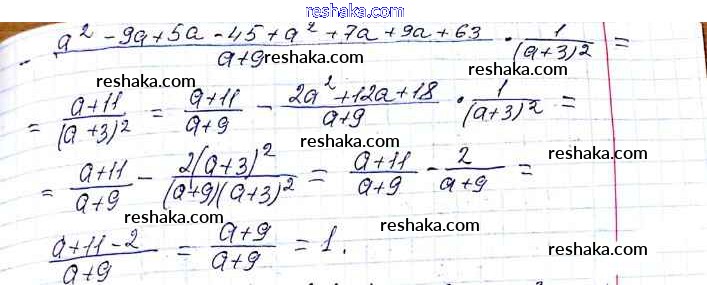 reshaka.com
- (a² - 9a + 5a - 45 + a² + 7a + 9a + 63)/(a+9) · 1/(a+3)² =
reshaka.com
reshaka.com
reshaka.com
= (a+11)/(a+3)² = (a+11)/(a+9) - (2a² + 12a + 18)/(a+9) · 1/(a+3)² =
reshaka.com
reshaka.com
= (a+11)/(a+9) - 2(a+3)²/((a+9)(a+3)²) = (a+11)/(a+9) - 2/(a+9) =
reshaka.com
reshaka.com
reshaka.com
(a+11-2)/(a+9) = (a+9)/(a+9) = 1.
reshaka.com
reshaka.com